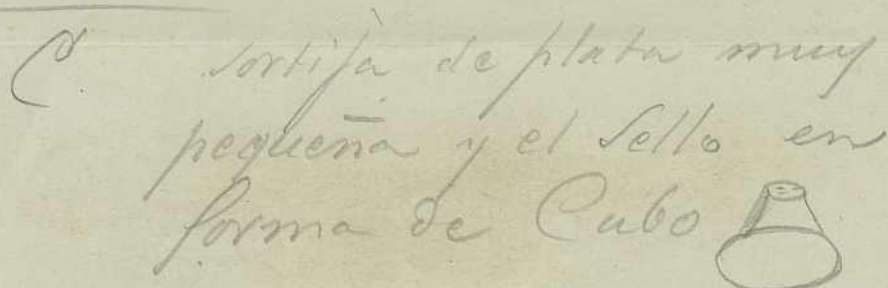 C. sortija de plata muy
pequeña y el sello en
forma de Cubo